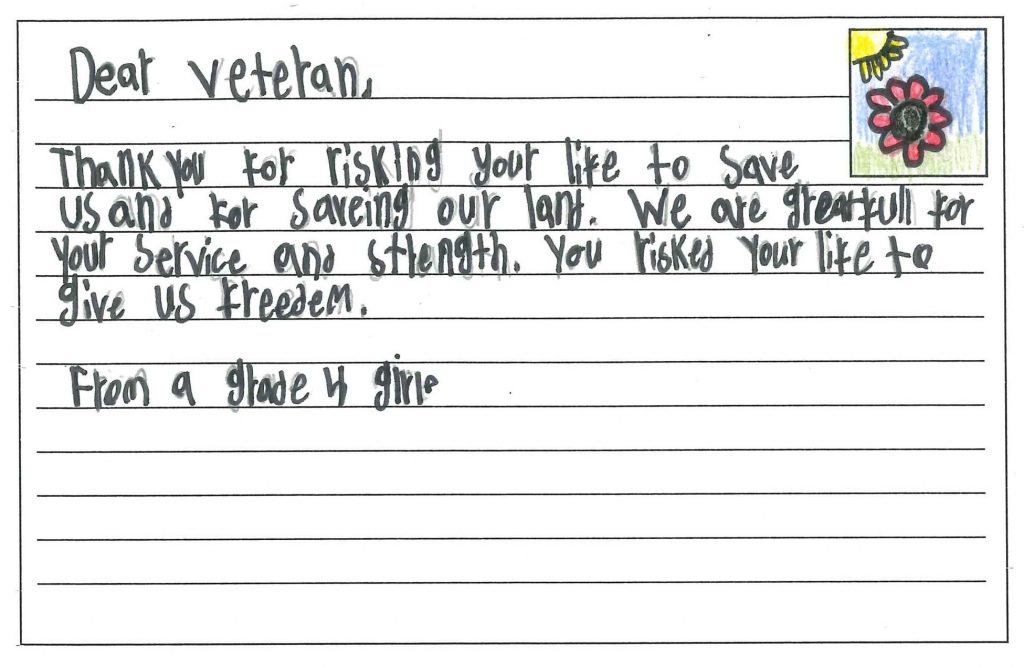 Dear Veteran,
Thank you for risking your life to save
us and for saveing our land. We are greatfull for
your service and strength. You risked your life to
give us freedem.
From a grade 4 girl.